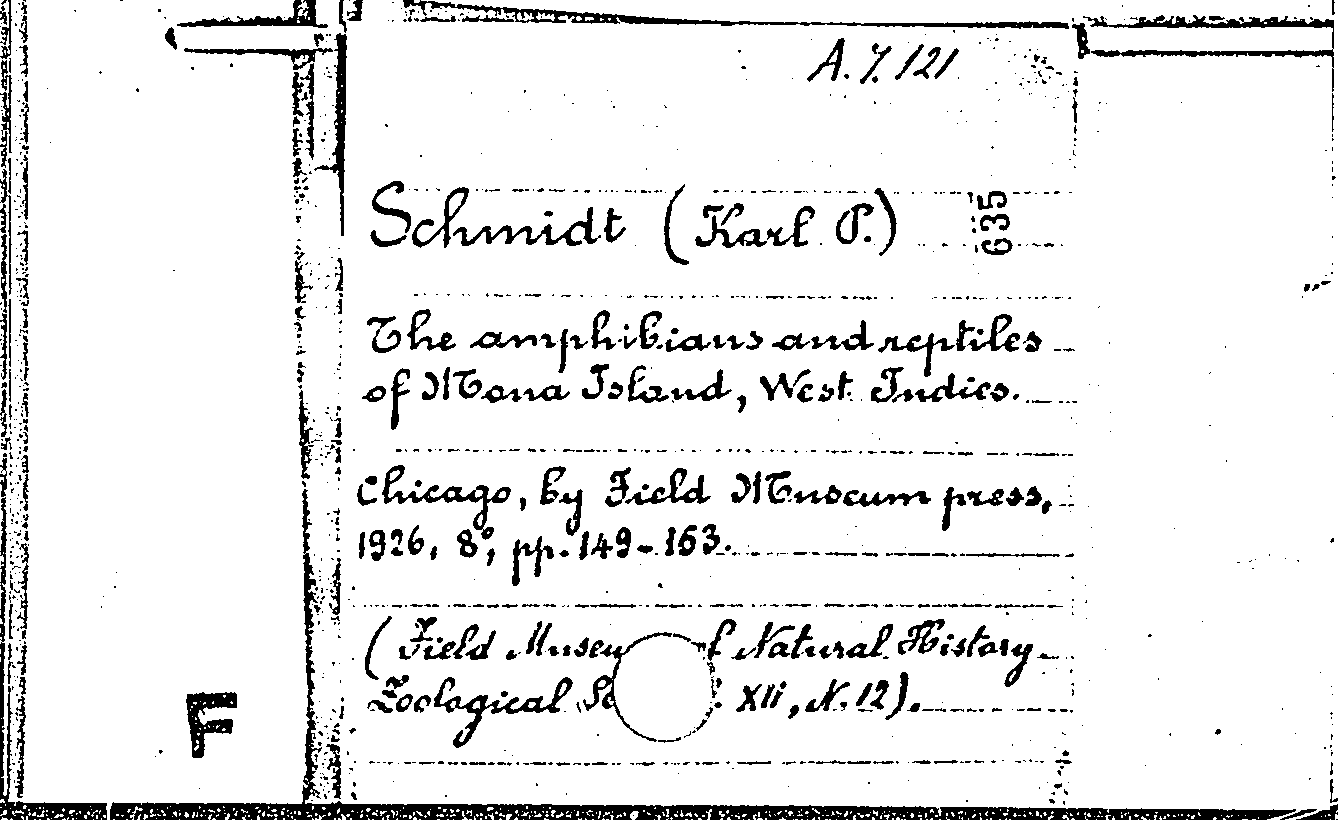 A. 7. 121
Schmidt (Karl P.)
635
The amphibians and reptiles
of Mona Island, West Indies.
Chicago, by Field Museum press,
1926, 8°, pp. 149-163.
(Field Museu f Natural History
Zoological Se . XII, N. 12).
F